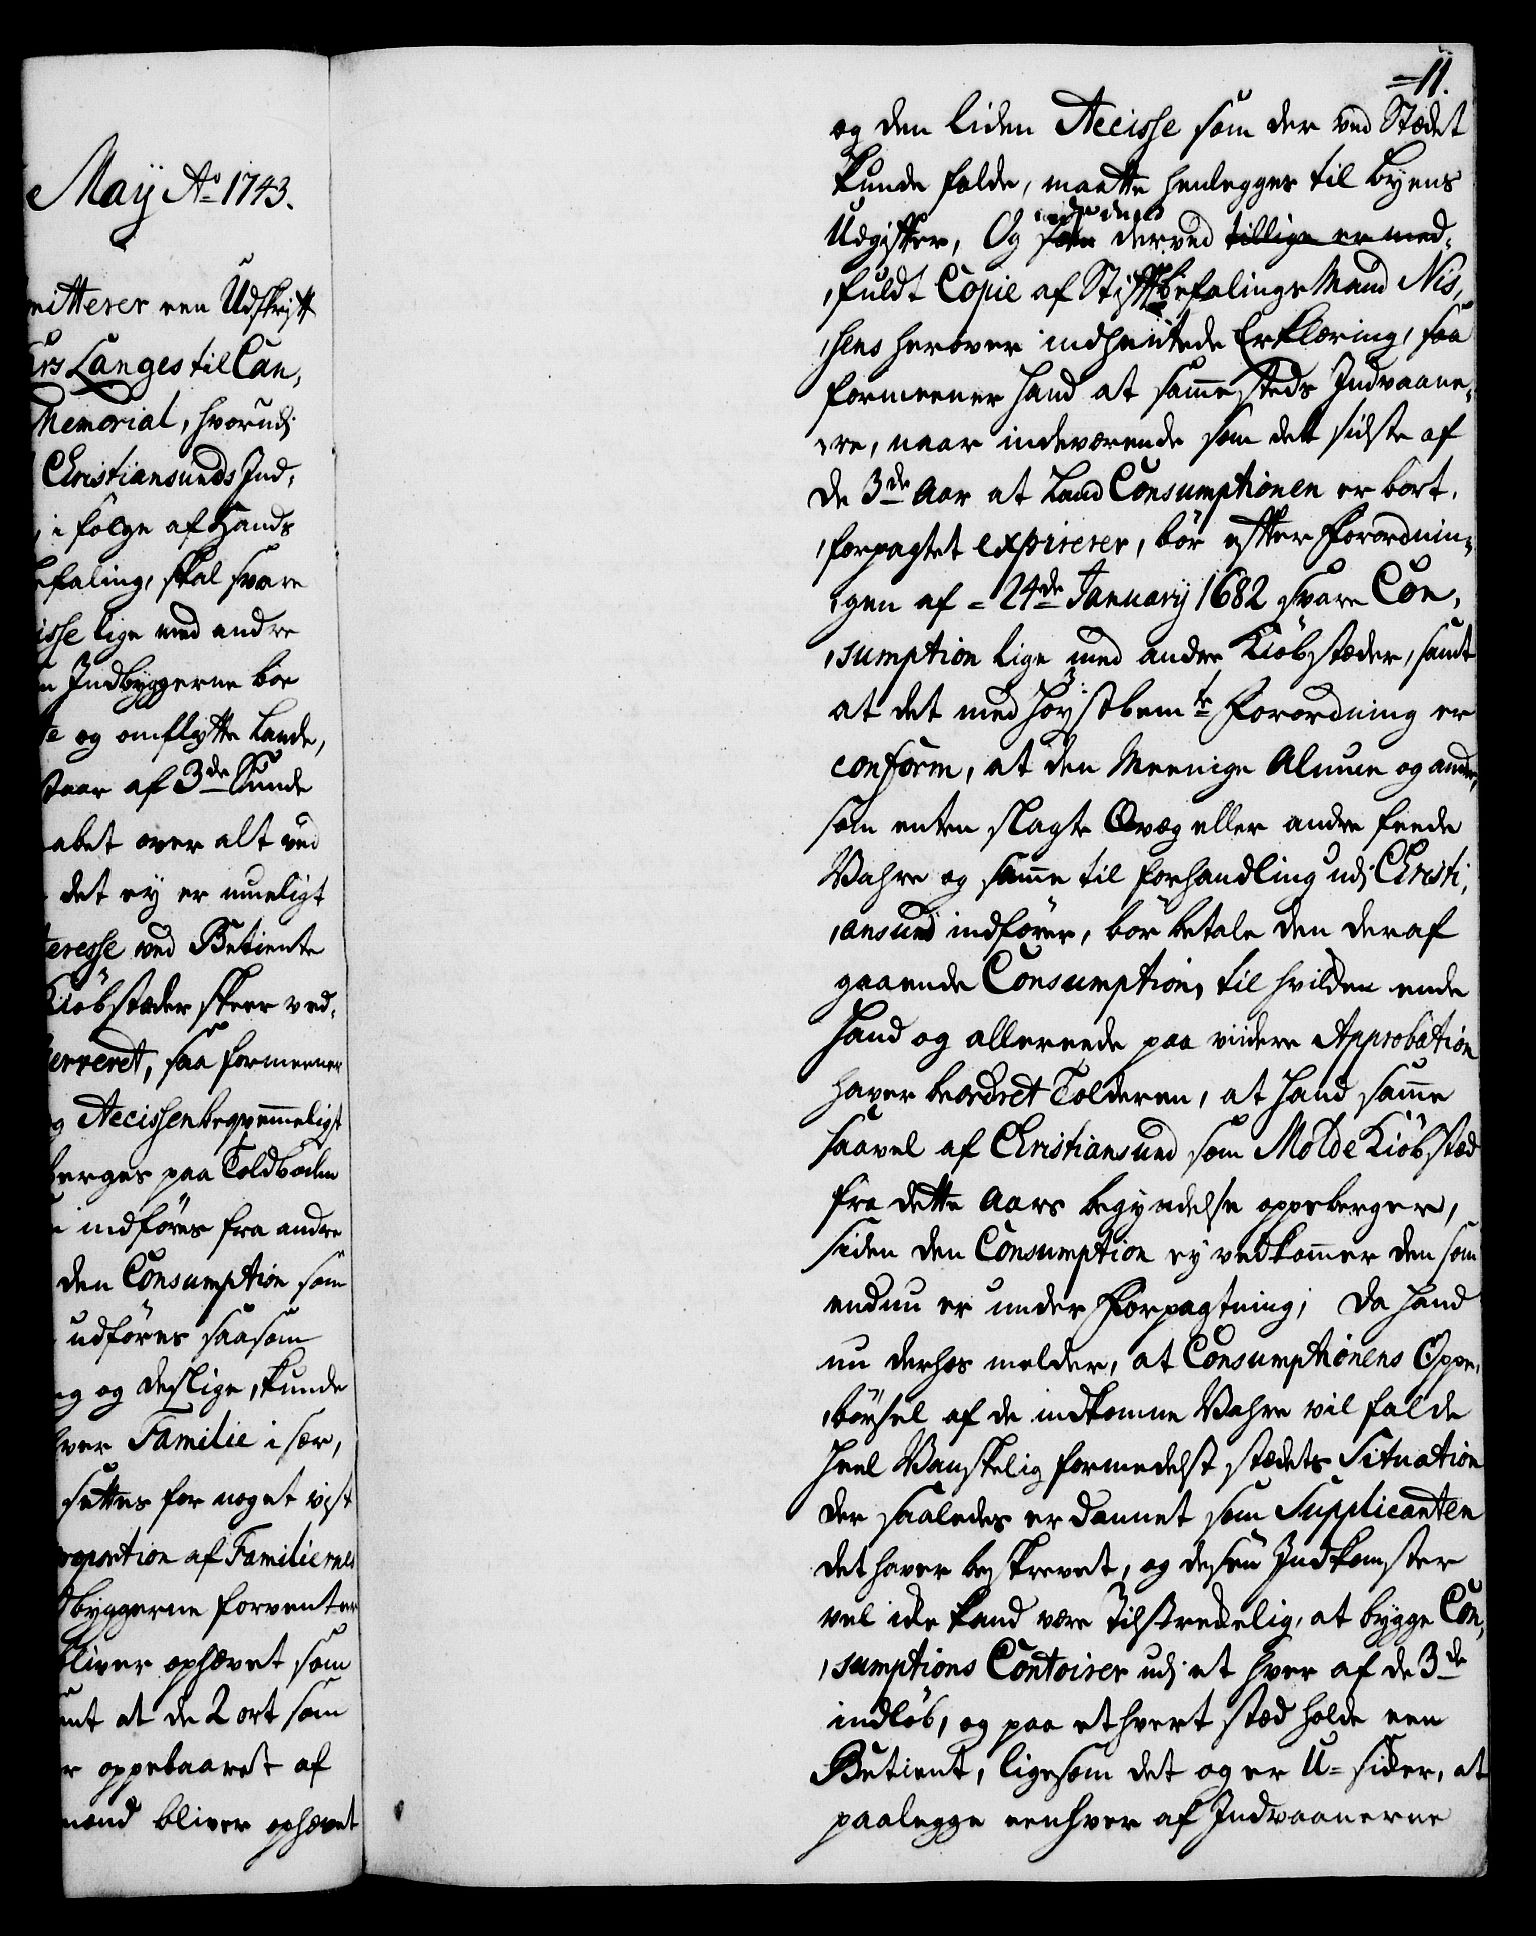 May Aͦ 1743.
mitterer een Udskrift
Langes til Can,
Memorial, hvorudj
Christiansunds Ind,
i følge af Hands
befaling, skal svare
cisse lige med andre
Indbyggerne boe
og omflytte Lande,
af 3de Sunde
over alt ved
det ey er mueligt
teresse ved Betiente
Kiöbstæder skeer ved,
erreret, saa formeener
og Accissen beqvemmeligst
berges paa Toldboden
indföres fra andre
den Consumption som
udföres saasom
og deslige, kunde
hver Familie i sær,
settes for noget vist
roportion af Familiernes
dbyggerne forventer
bliver ophævet som
at de 2 ort som
oppebaaret af
mænd bliver ophævet
=11.
og den liden Accisse som der ved Stædet
kunde falde, maatte henlegges til Byens
Udgifter, Og som derved tillige er med,
,fuldt Copie af Stiftbefalings Mand Nis,
,sens herover indhentede Erklæring, saa
formeener hand at sam̃esteds Indvaane,
ere, naar indeværende som det sidste af
de 3de Aar at Land Consumptionen er bort,
,forpagtet expirerer, bör efter Forordnin,
,gen af = 24de January 1682 svare Con,
,sumption lige med andre Kiöbstæder, samt
at det med Höystbemte Forordning er
conform, at den Meenige Almue og andre,
som enten slagte Qvæg eller andre feede
Vahre og sam̃e til forhandling udj Christi,
,ansund indförer, bör betale den deraf
gaaende Consumption, til hvilden ende
Hand og allereede paa viidere Approbation
haver beordret Tolderen, at Hand sam̃e
saavel af Christiansund som Molde Kiöbstæd
fra dette Aars begyndelse oppeberger,
siden den Consumption ey vedkom̃er den som
endnu er under Forpagtning; Da Hand
nu derhos melder, at Consumptionens Oppe,
,börsel af de indkomne Vahre vil falde
Heel Vanskelig formedelst stædets Situation
der saaledes er dannet som Supplicanten
det haver beskrevet, og desen Indkomster
vel icke kand være tilstreckelig, at bygge Con,
,sumptions Contoirer udj et hver af de 3de
indlöb, og paa et hvert stæd holde een
Betient, ligesom det og er U=sicker, at
paalegge eenhver af Indvaanerne